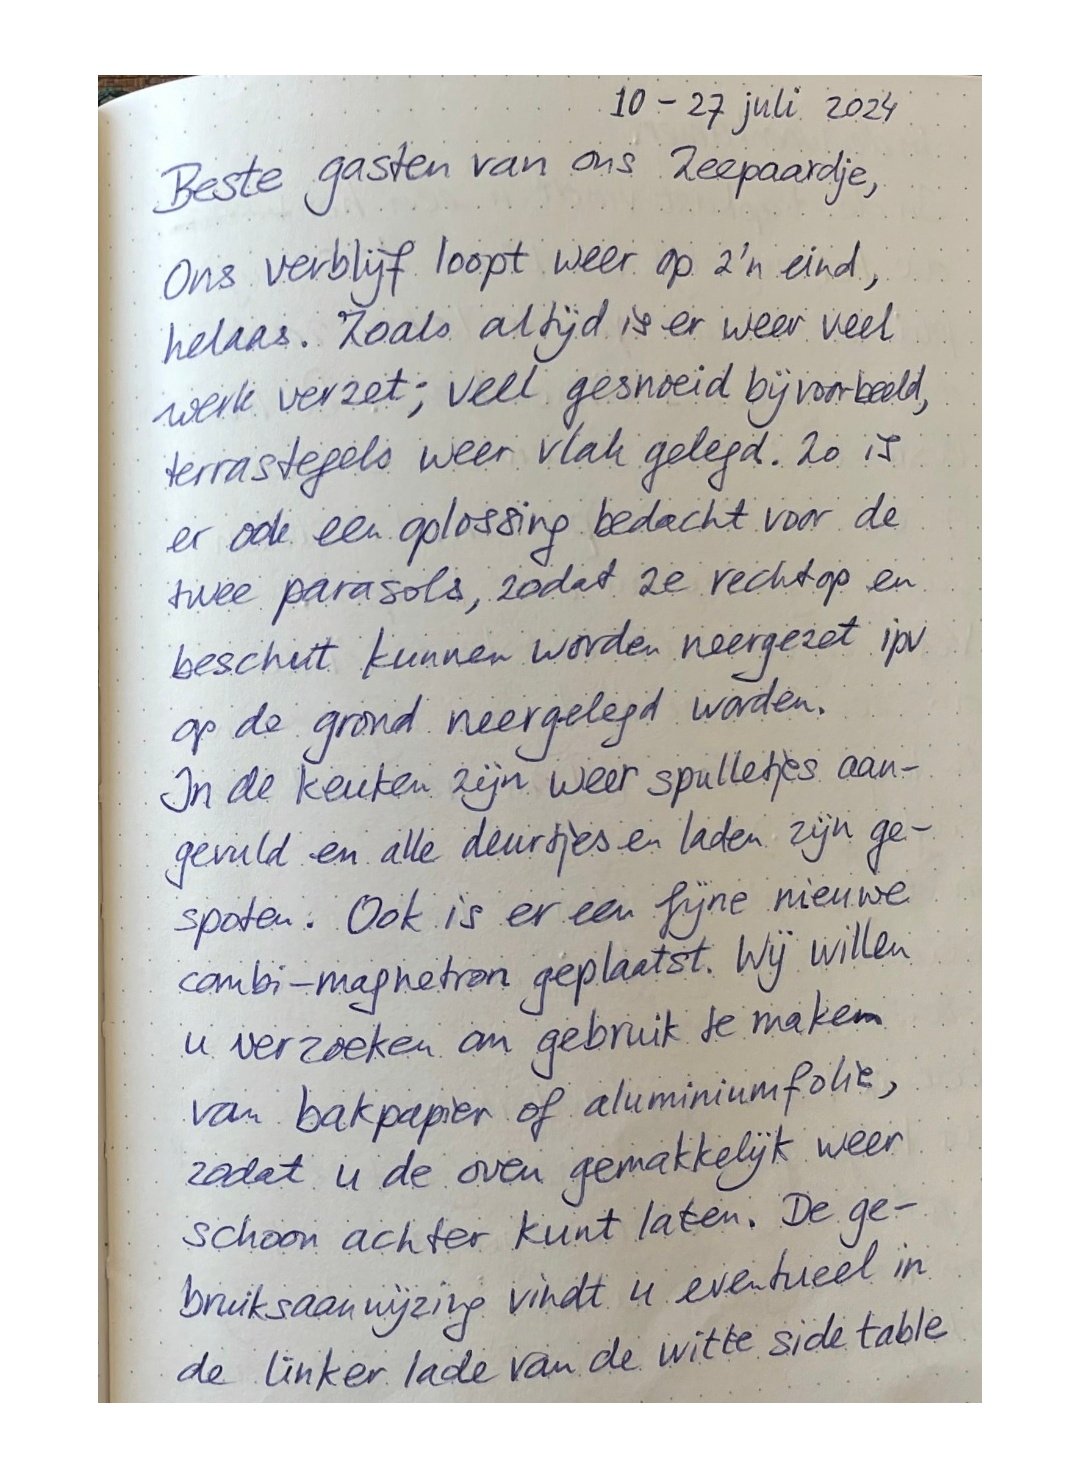 10 - 27 juli 2024
Beste gasten van ons Zeepaardje,
Ons verblijf loopt weer op z'n eind,
helaas. Zoals altijd is er weer veel
werk verzet; veel gesnoeid bijvoorbeeld,
terrastegels weer vlak gelegd. Zo is
er ook een oplossing bedacht voor de
twee parasols, zodat ze rechtop en
beschut kunnen worden neergezet ipv
op de grond neergelegd worden.
In de keuken zijn weer spulletjes aan-
gevuld en alle deurtjes en laden zijn ge-
spoten. Ook is er een fijne nieuwe
combi-magnetron geplaatst. Wij willen
u verzoeken om gebruik te maken
van bakpapier of aluminiumfolie,
zodat u de oven gemakkelijk weer
schoon achter kunt laten. De ge-
bruiksaanwijzing vindt u eventueel in
de linker lade van de witte side table